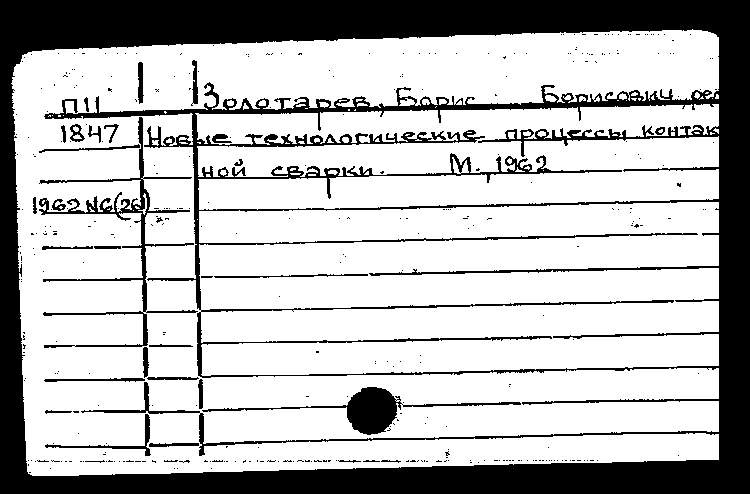 П11 Золотарев, Борис Борисович, ред
1847 Новые технологические процессы контакт
ной сварки. М., 1962
1962 №6(26)